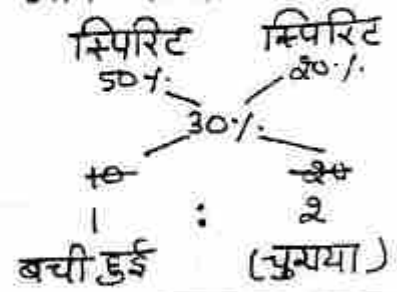 स्पिरिट स्पिरिट
50% 20%
30%
10 20
1 : 2
बची हुई (चुराया)